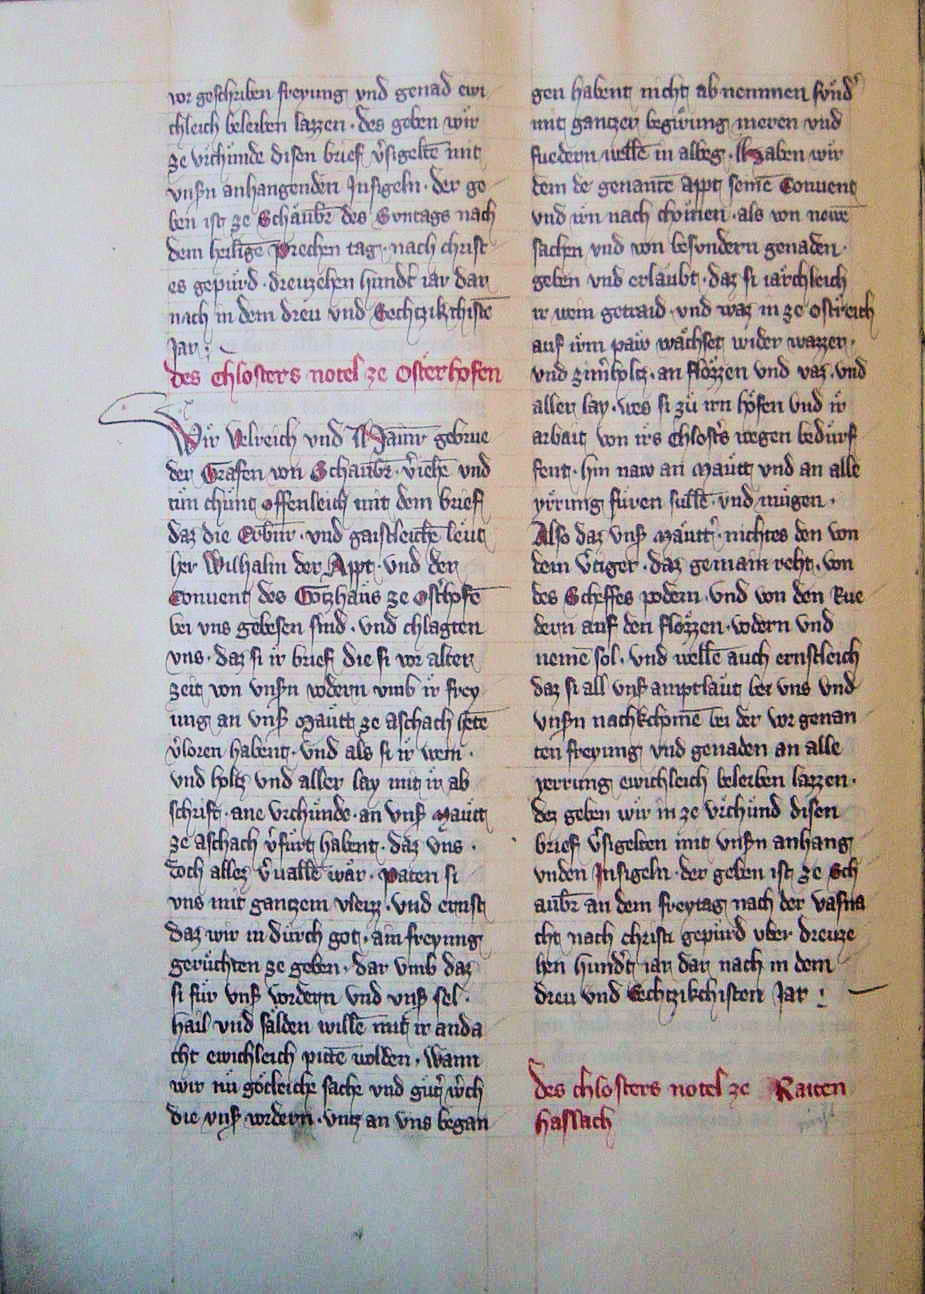 vor geschriben freyung vnd genad ewi
chleich beleiben lazzen · des geben wir
ze vrchünde disen brief v̾sigeltē mit
vnsn anhangenden Insigeln · der ge
ben ist ze Schaunbr̄ des Svntags nach
dem heiligē Prechen tag · nach christ
es gepürd · dreutzehen hundt̾ iar dar
nach in dem dreu vnd Sechtzikchistē
Jar :
des Chlosters notel ze Osterhofen
Wir Vlreich vnd gebrue
der Grafen von Schaunbr̄ · v̾iehē vnd
tün chunt offenleich mit dem brief
daz die Erb̾n · vnd gaistleichē leut
her Wilhalm der Appt · vnd der
Conuent des Gotzhaus ze Ost̾hofē
bei vns gebesen sind · vnd chlagten
vns · daz si ir brief die si vor alter
zeit von vnsn vodern vmb ir frey
ung an vnsr̾ Mautt ze aschach hetē
v̾loren habent · vnd als si ir wein ·
vnd holtz vnd aller lay mit ir ab
schrift · ane vrchünde · an vnsr̾ Mautt
ze aschach v̾fürt habent · daz vns ·
doch allez v̾uallē wär · Paten si
vns mit gantzem vleizz · vnd ernst
daz wir in durch got · ain freyung
geruchten ze geben · dar vmb daz
si für vnsr̾ vordern vnd vnsr̾ sel ·
hail vnd sälden willē mit ir anda
cht ewichleich pittē wolden · Wann
wir nu götleiche sache vnd gut̾ w̾ch
die vnsr̾ vordern · vntz an vns began
gen habent nicht ab nemmen sund̾
mit gantzer begirung meren vnd
fuedern wellē in albeg · Haben wir
dem de genantē Appt seinē Conuent
vnd irn nach chomen · als von newē
sachen vnd von besundern genaden ·
geben vnd erlaubt · daz si iärchleich
ir wein getraid · vnd waz in ze Ostreich
auf irm paw wachset wider wazzer ·
vnd zim̄holtz · an flözzen vnd vaz · vnd
aller lay · wes si zu irn höfen vnd ir
arbait von irs Chlost̾s wegen bedürf
fent · hin naw an Mautt vnd an alle
yrrung füren sullē · vnd mugen ·
Also daz vnsr̾ Mautt̾ · nichtes den von
dem · daz gemain reht · von
des Scheffes podem · vnd von den Rue
dern auf den flözzen · vodern vnd
nemē sol · vnd wellē auch ernstleich
daz si all vnsr̾ amptläut bei vns vnd
vnsn nachkchomē bei der vor genan
ten freyung vnd genaden an alle
yerrung ewichleich beleiben lazzen ·
dez geben wir in ze vrchünd disen
brief v̾sigelten mit vnsn anhang
unden Insigeln · der geben ist ze Sch
aunbr̄ an dem freytag nach der vasna
cht nach christi gepürd vber dreutze
hen hundt̾ iar dar nach in dem
dreu vnd Sechtzikchisten Jar :
des chlosters notel ze Raiten
haslach